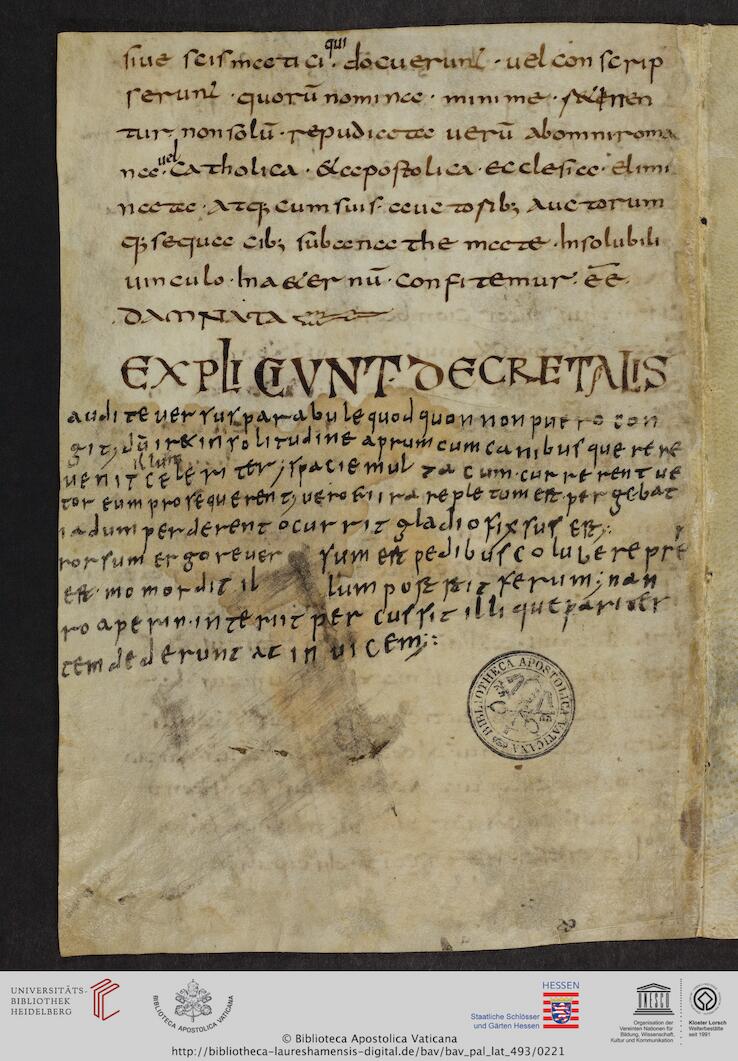 qui
siue scismatici · docuerunt · uel conscrip
serunt · quorū nomina · minime
tur, non solū · repudiata uerū ab omni roma
na · uel catholica · & apostolica · ecclesia · elimi
nata · Atq; cum suis · auctorib; Auctorum
q; sequacib; sub anathemate · Insolubili
uinculo · In a&ernū · confitemur · ēē ·
DAMNATA
EXPLICIUNT · DECRETALIS
audite uersus parabule quod quon non puero con
git; dū ir& in solitudine aprum cum canibus querere
illum
uenit celeriter; spacie mul ta cum · currerent ue
tor eum prosequerent; uero &ii ira repletum est · per gebat
adum perderent ocurrit gladio fixsus est;
rorsum ergo reuer sum est pedibus colubere pre
est · momordit il lum post ferum; nan
ro aperin · interiit percussit illi que pariter
tem dederunt at in uicem;
BIBLIOTHECA APOSTOLICA VATICANA
UNIVERSITÄTS-
BIBLIOTHEK
HEIDELBERG
BIBLIOTHECA APOSTOLICA VATICANA
HESSEN
Staatliche Schlösser
und Gärten Hessen
UNESCO
Organisation der
Vereinten Nationen für
Bildung, Wissenschaft,
Kultur und Kommunikation
Kloster Lorsch
Welterbestätte
seit 1991
© Biblioteca Apostolica Vaticana
http://bibliotheca-laureshamensis-digital.de/bav/bav_pal_lat_493/0221